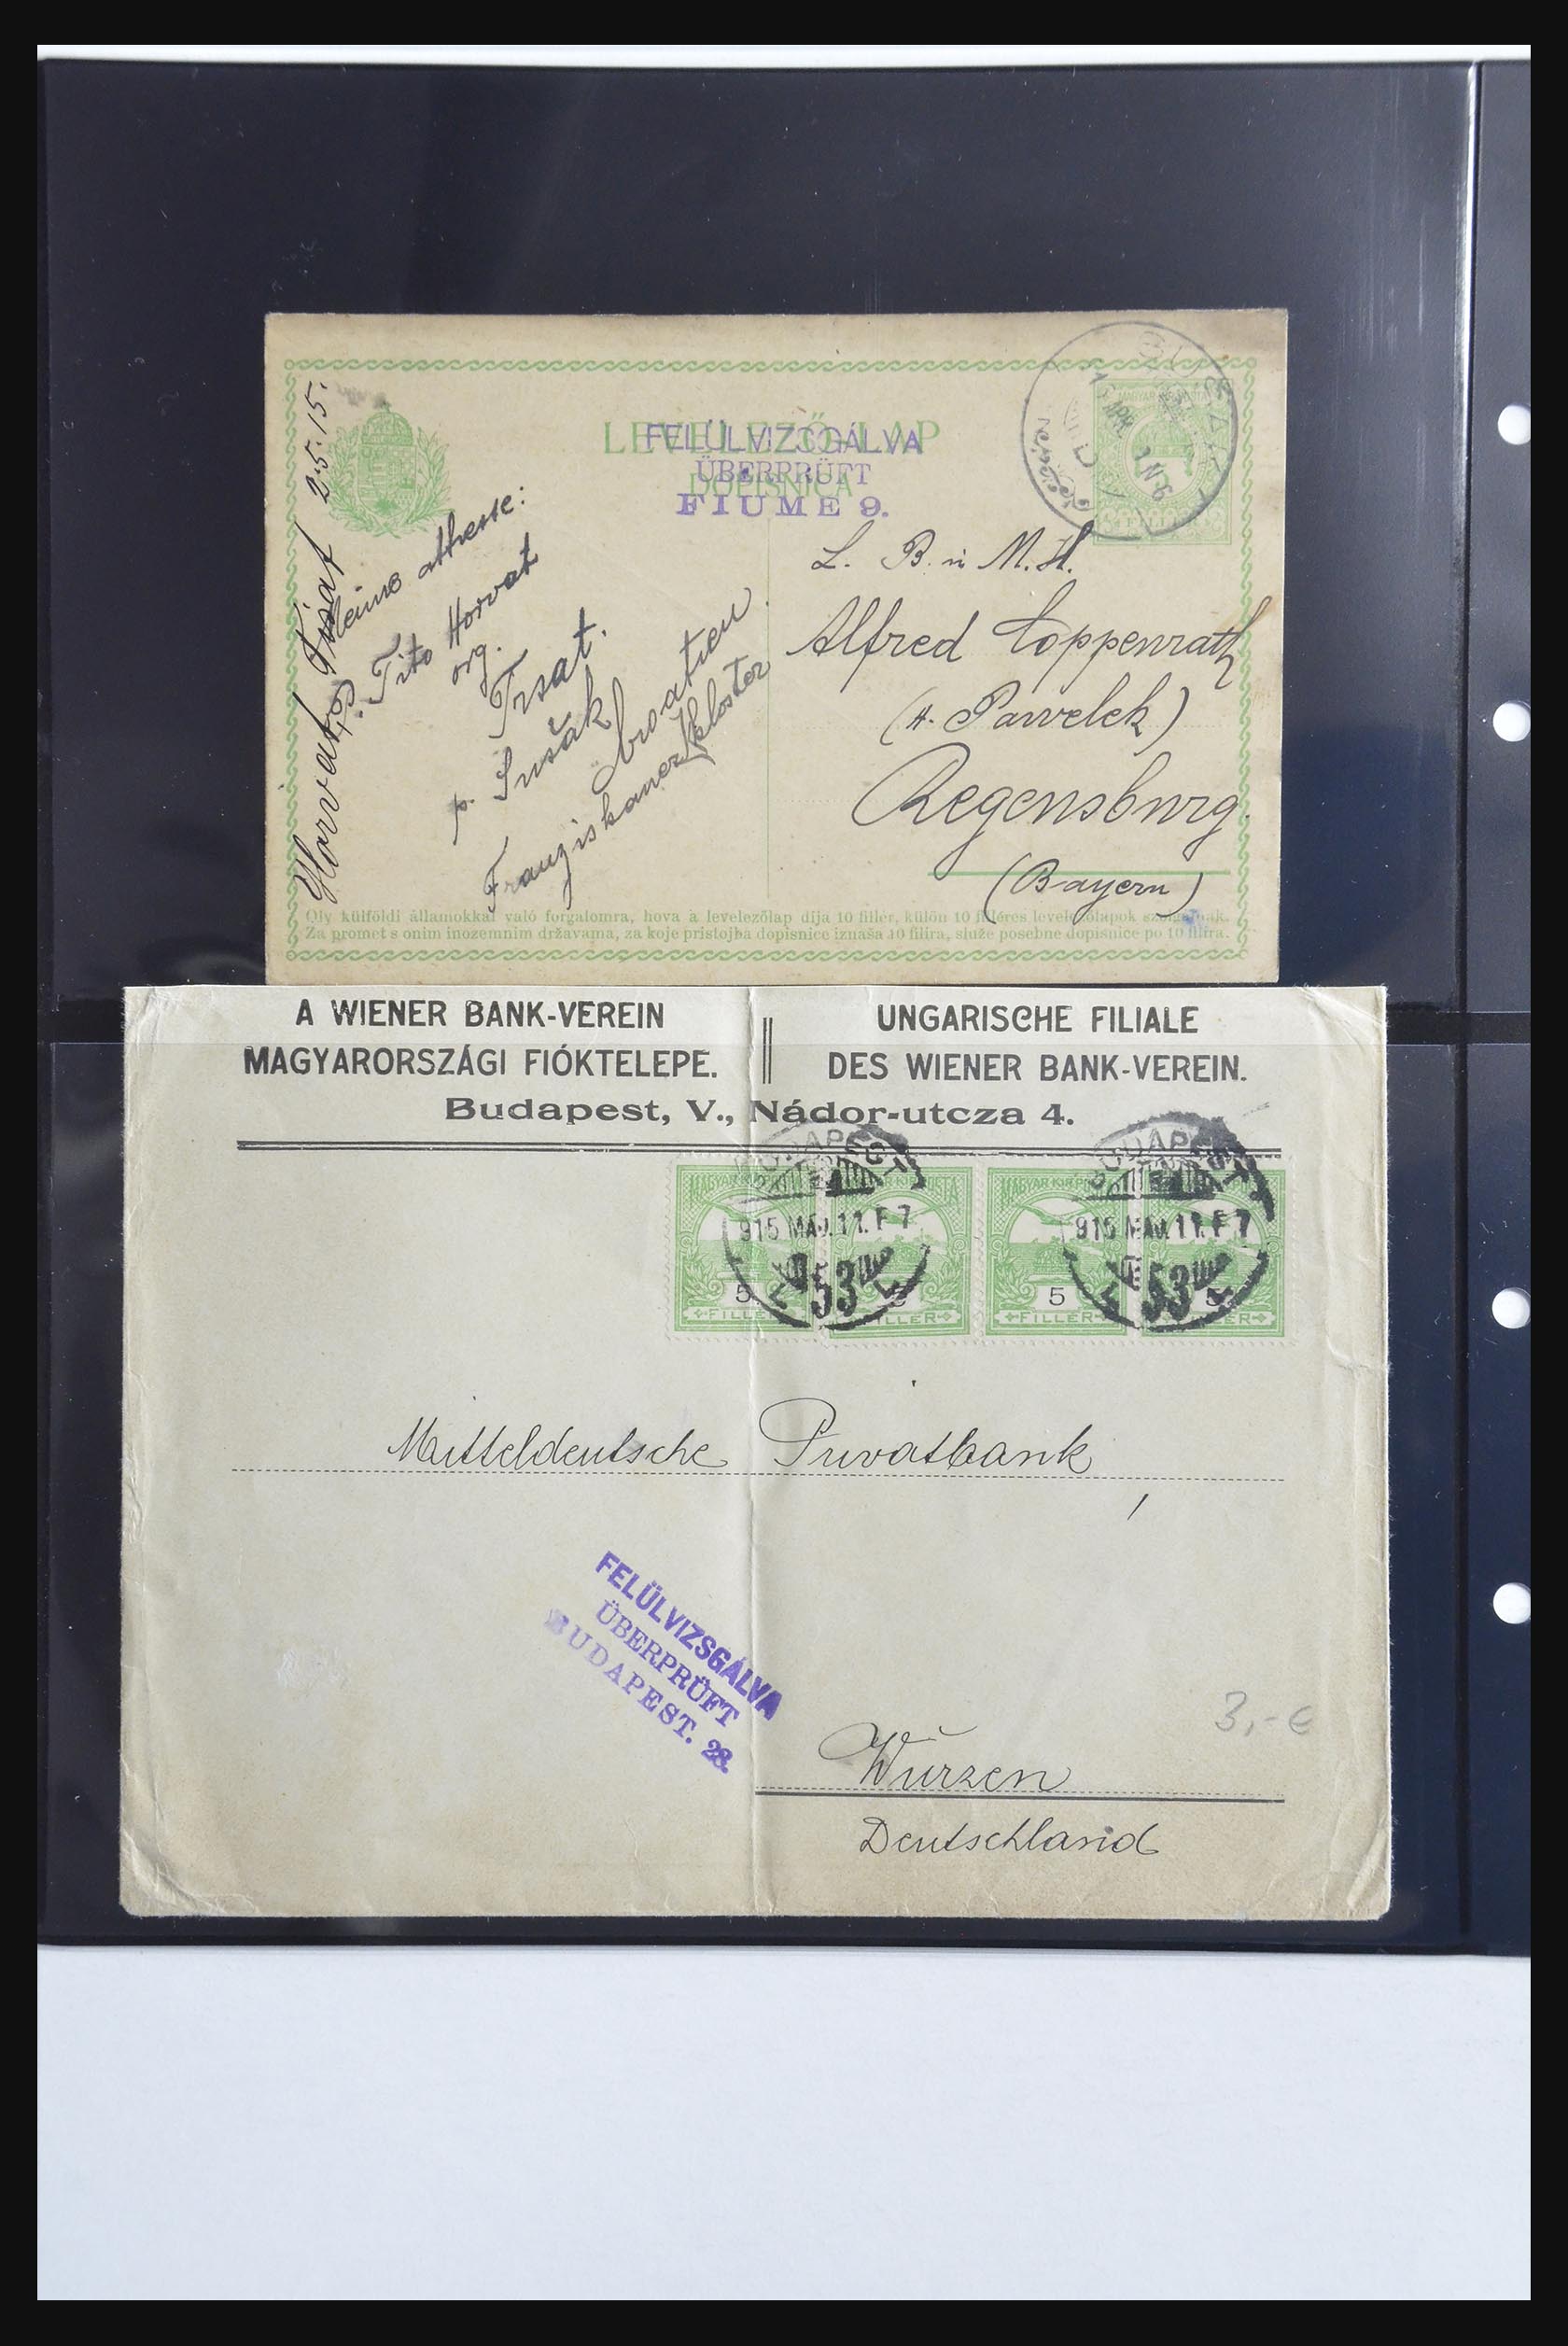 LEVELEZŐ-LAP
DOPISNICA
FELÜLVIZSGÁLVA
ÜBERPRÜFT
FIUME 9.
2.5.15.
Tito Horvat
org.
Trsat.
p. Sušak
Croatien
Franziskanerkloster
L. B. in M. H.
Alfred Coppenrath
(H. Pawelek)
Regensburg.
(Bayern)
Oly külföldi államokkal való forgalomra, hova a levelezőlap dija 10 fillér, külön 10 filléres levelezőlapok szolgálnak.
Za promet s onim inozemnim državama, za koje pristojba dopisnice iznaša 10 filira, služe posebne dopisnice po 10 filira.
A WIENER BANK-VEREIN
MAGYARORSZÁGI FIÓKTELEPE.
UNGARISCHE FILIALE
DES WIENER BANK-VEREIN.
Budapest, V., Nádor-utcza 4.
BUDAPEST BUDAPEST
915 MÁJ.11. F 7 915 MÁJ.11. F 7
53 53
5 5 5 5
FILLER FILLER FILLER FILLER
Mitteldeutsche Privatbank
FELÜLVIZSGÁLVA
ÜBERPRÜFT
BUDAPEST. 28.
3,- €
Wurzen
Deutschland